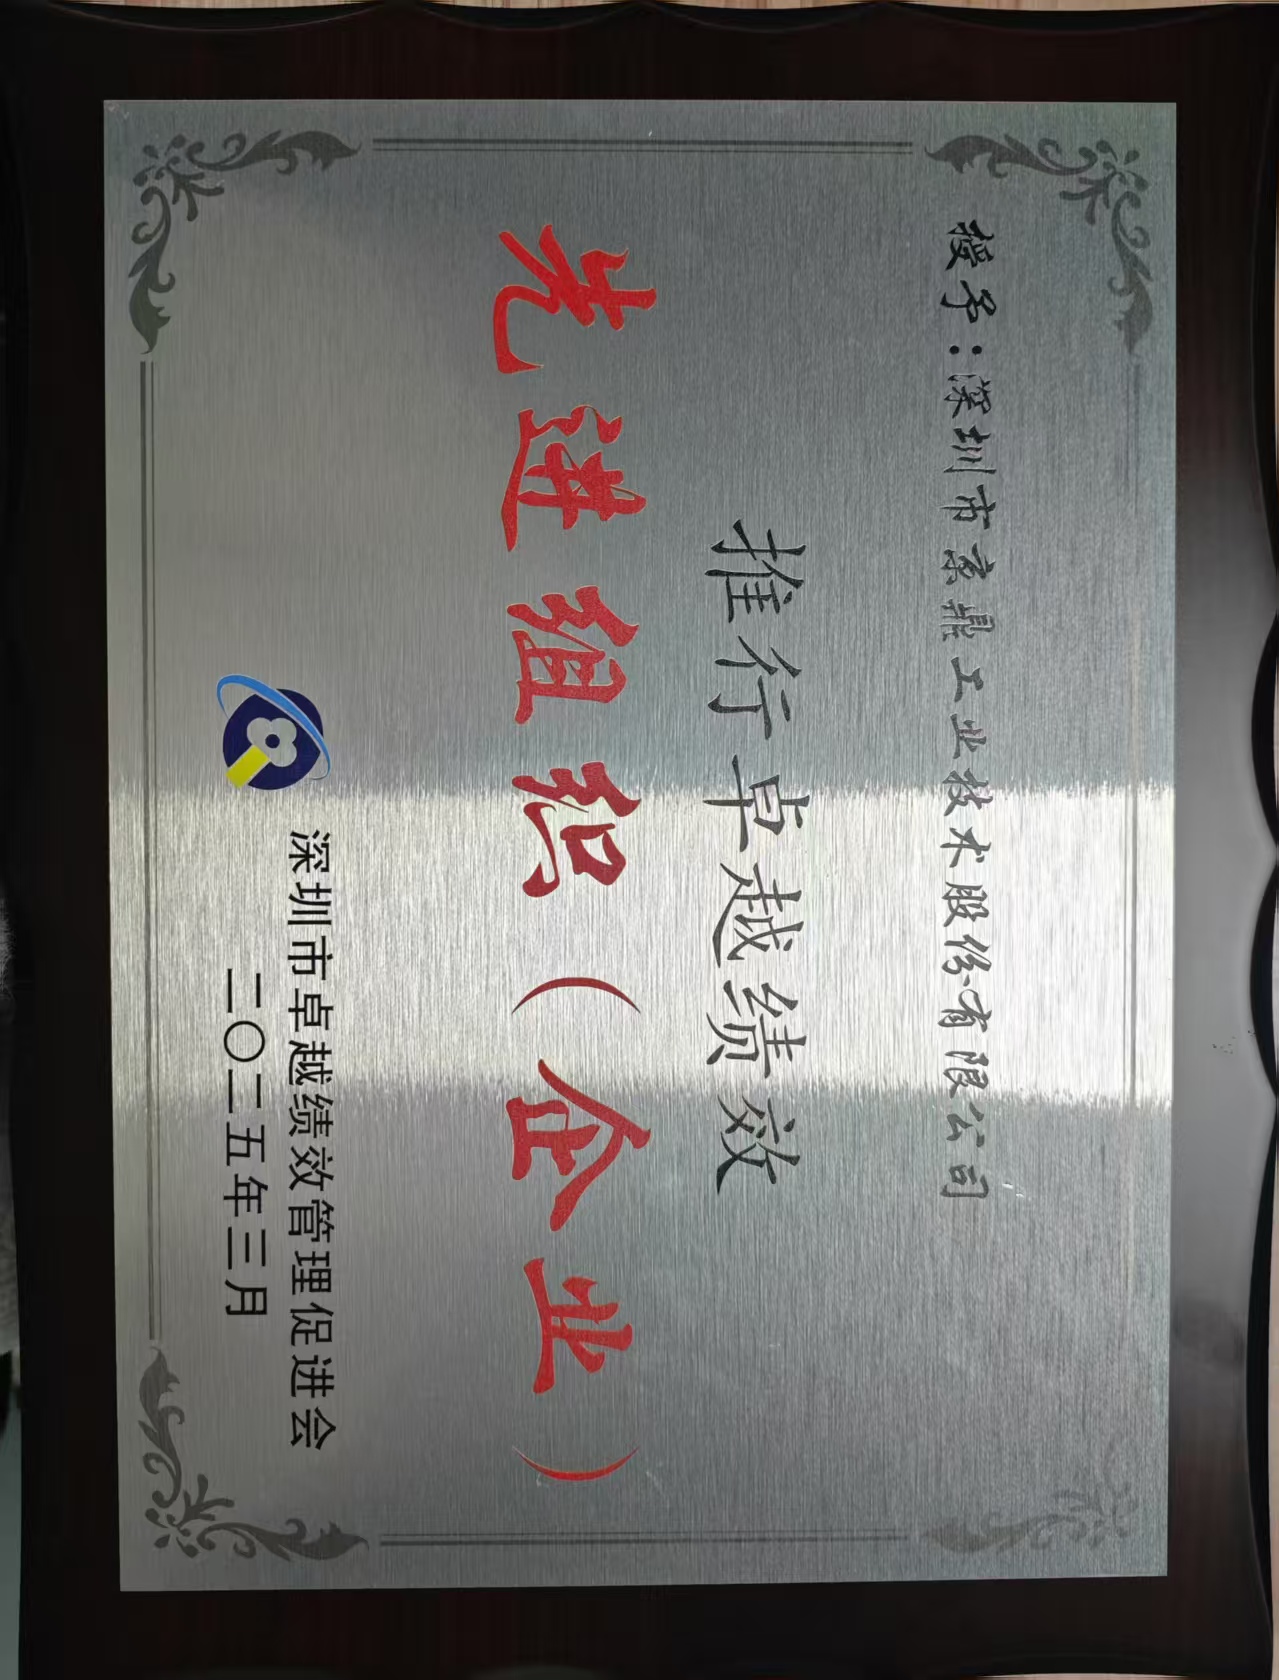 授予：深圳市京鼎工业技术股份有限公司
推行卓越绩效
先进组织（企业）
深圳市卓越绩效管理促进会
二〇二五年三月